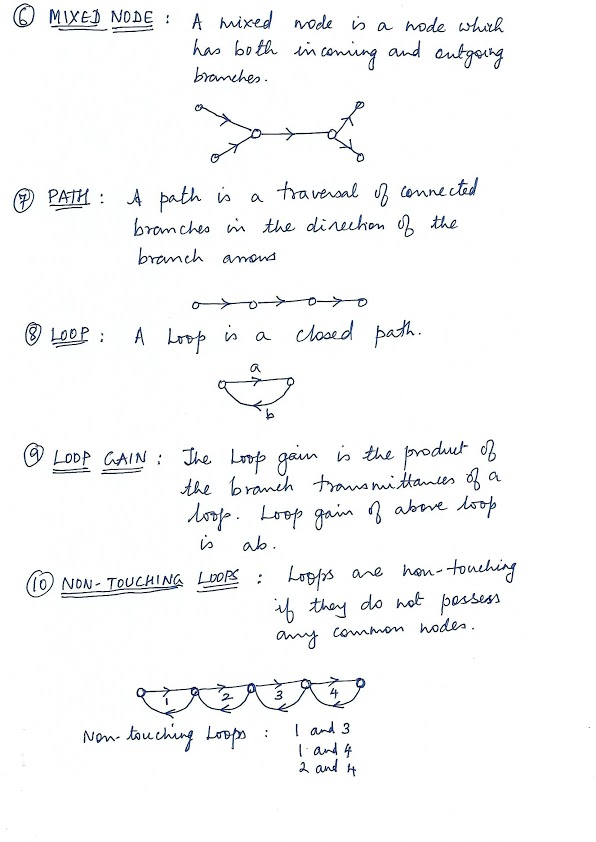 ⑥ MIXED NODE : A mixed node is a node which
has both incoming and outgoing
branches.
⑦ PATH : A path is a traversal of connected
branches in the direction of the
branch arrows
⑧ LOOP : A Loop is a closed path.
a
b
⑨ LOOP GAIN : The Loop gain is the product of
the branch transmittances of a
loop. Loop gain of above loop
is ab.
⑩ NON-TOUCHING LOOPS : Loops are non-touching
if they do not possess
any common nodes.
1 2 3 4
Non-touching Loops : 1 and 3
1 and 4
2 and 4